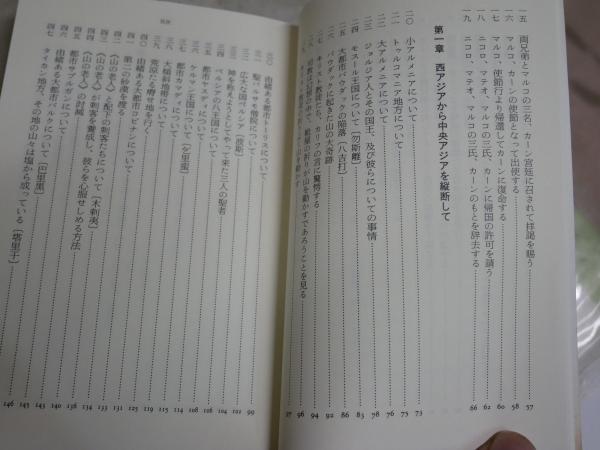 一五 両兄弟とマルコの三名、カーン宮廷に召されて拝謁を賜う 57
一六 マルコ、カーンの使節となって出使する 58
一七 マルコ、使節行より帰還してカーンに復命する 60
一八 ニコロ、マテオ、マルコの三氏、カーンに帰国の許可を請う 62
一九 ニコロ、マテオ、マルコの三氏、カーンのもとを辞去する 66
第一章 西アジアから中央アジアを縦断して
小アルメニアについて 73
トゥルコマニア地方について 75
大アルメニアについて 76
ジョルジア人とその国王、及び彼らについての事情 78
二四 モスール王国について〔勿斯離〕 83
二五 大都市バウダックの陥落〔八吉打〕 86
バウダックに起きた山の大奇跡 92
キリスト教徒たち、カリフの言に驚愕する 94
靴屋の祈りが山を動かすであろうことを見る 96
97
目次
三〇 由緒ある都市トーリスについて 99
三一 聖バルサモ僧院について 101
三二 広大な国ペルシア〔波斯〕 102
神を称えようとしてやって来た三人の聖者 104
ペルシアの八王国について 106
都市ヤスディについて 108
ケルマン王国について〔乞里蛮〕
都市カマディについて 114
大傾斜地帯について 115
荒涼たる瘠せ地を行く 119
四〇 由緒ある大都市コビナンについて 121
四一 第二の砂漠を渡る
四二 《山の老人》と配下の刺客たちについて〔木剌夷〕
四三 《山の老人》が刺客を養成し、彼らを心服せしめる方法 133
四四 《山の老人》の討滅 134
四五 都市サプルガンについて
四六 由緒ある大都市バルクについて〔巴里黒〕 145
四七 タイカン地方、その地の山々は塩から成っている〔塔里干〕 146